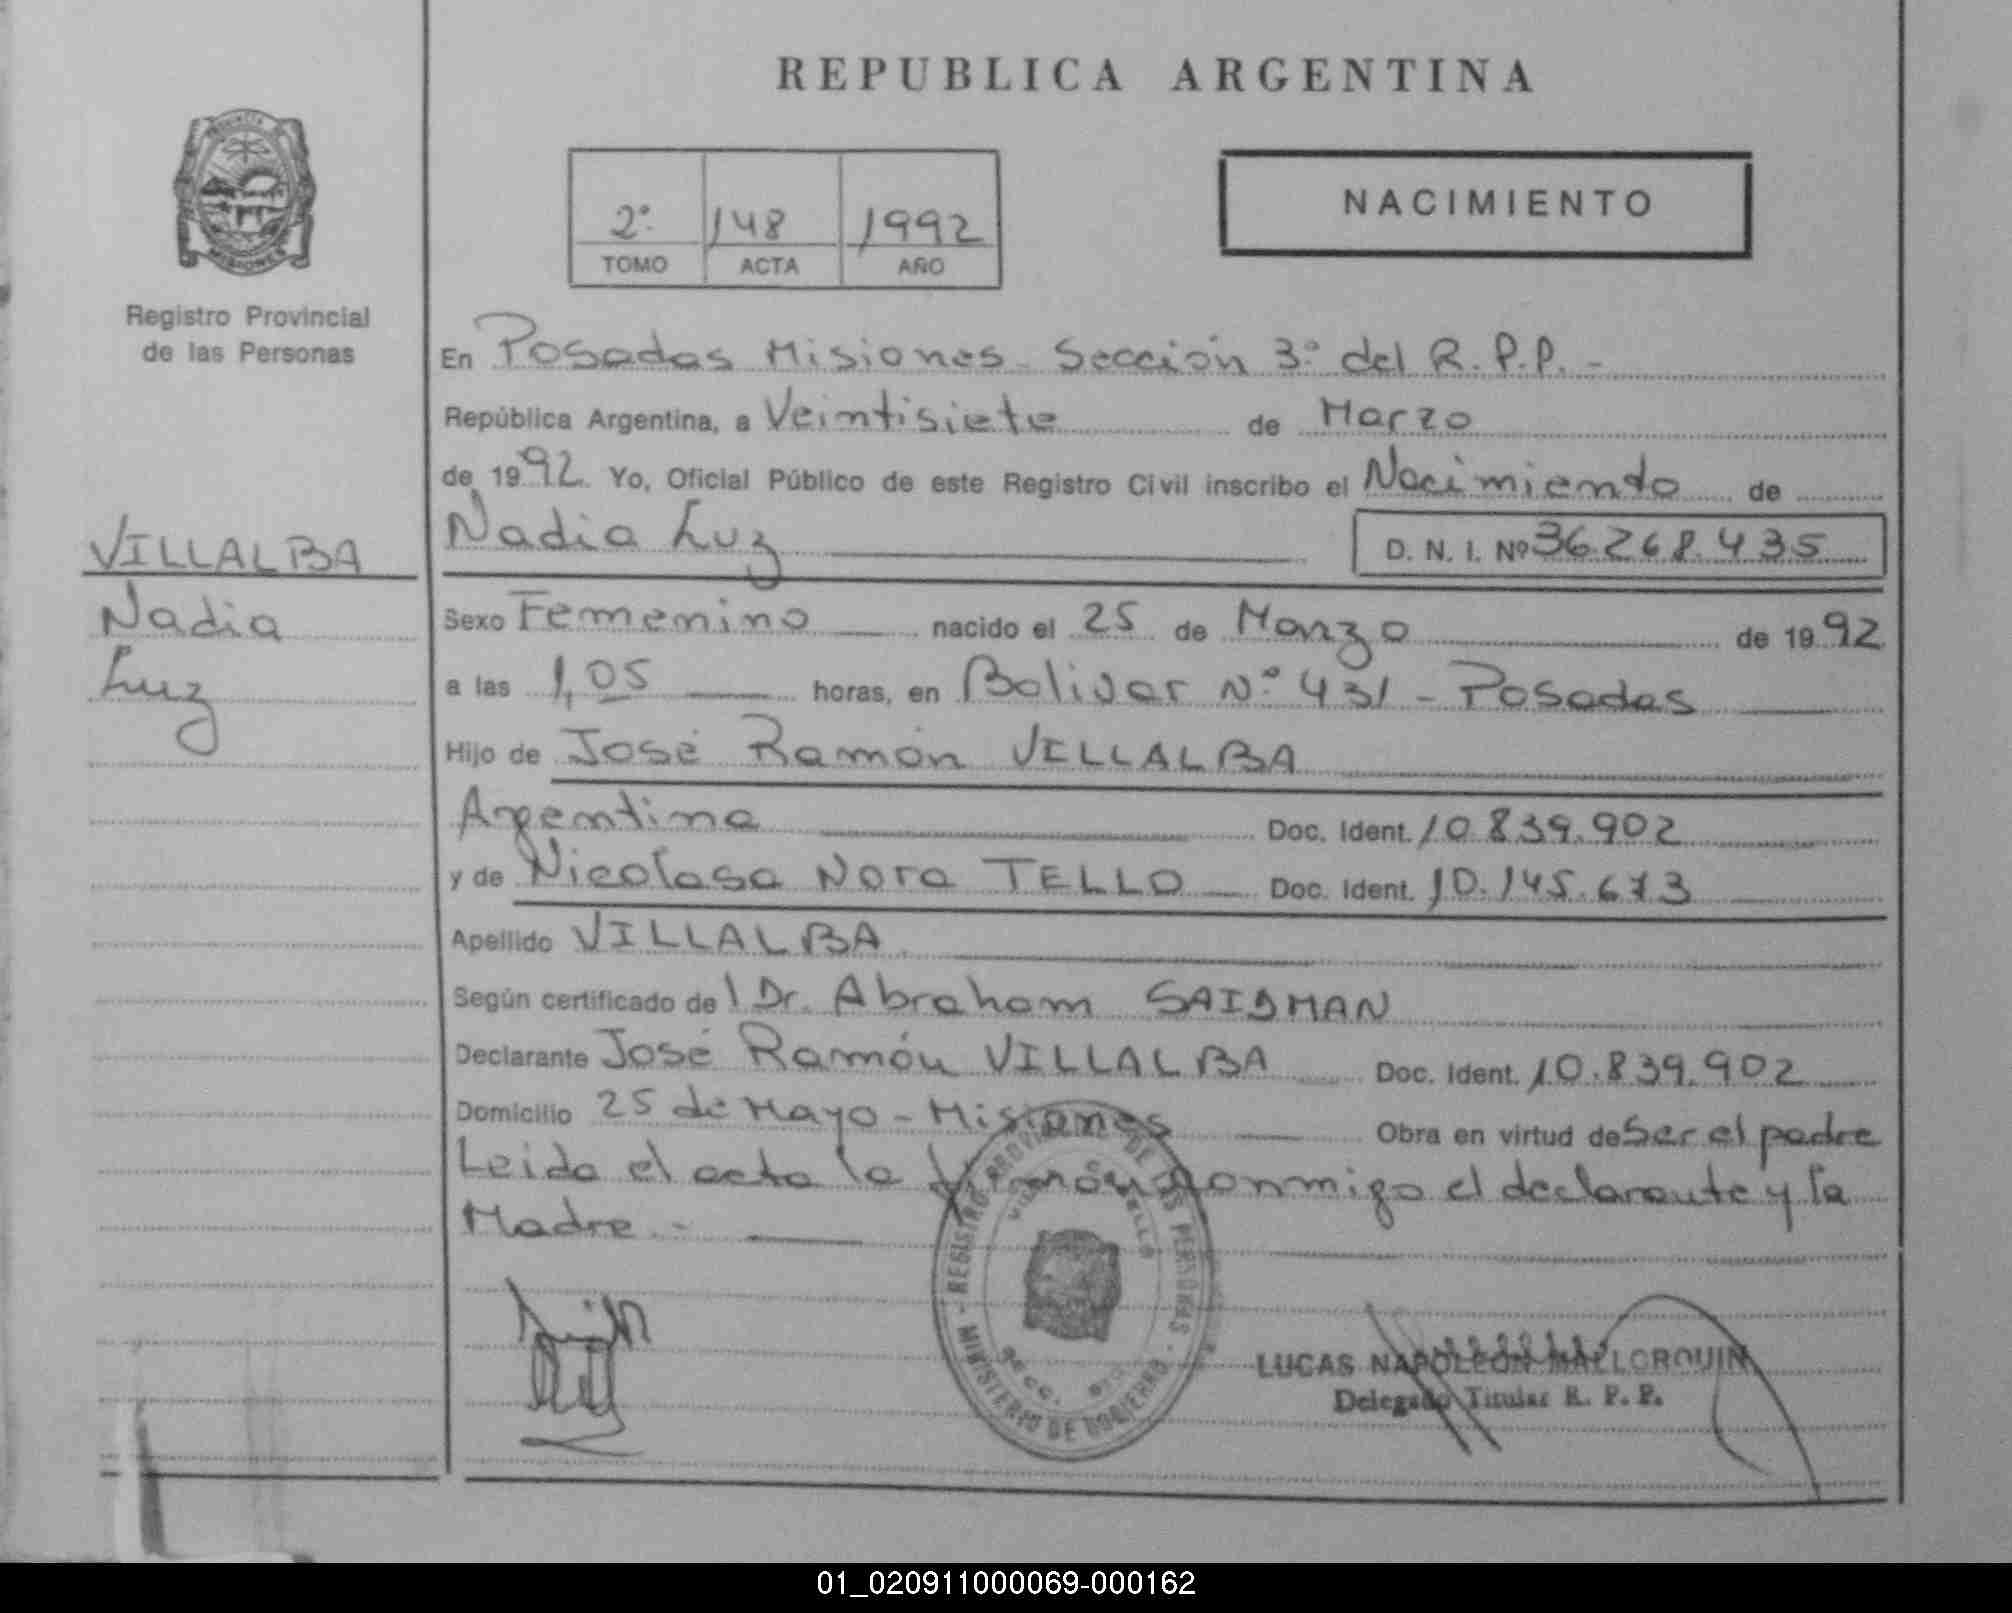 REPUBLICA ARGENTINA
PROVINCIA DE
MISIONES
Registro Provincial
de las Personas
2º 148 1992
TOMO ACTA AÑO
NACIMIENTO
En Posadas Misiones - Sección 3º del R.P.P. -
República Argentina, a Veintisiete de Marzo
de 1992. Yo, Oficial Público de este Registro Civil inscribo el Nacimiento de
VILLALBA
Nadia
Luz
Nadia Luz D. N. I. Nº 36.268.435
Sexo Femenino nacido el 25 de Marzo de 1992
a las 1,05 horas, en Bolivar Nº 431 - Posadas
Hijo de José Ramón VILLALBA
Argentina Doc. Ident. 10.839.902
y de Nicolasa Nora TELLO Doc. Ident. 10.145.673
Apellido VILLALBA
Según certificado del Dr. Abraham SAIDMAN
Declarante José Ramón VILLALBA Doc. Ident. 10.839.902
Domicilio 25 de Mayo - Misiones Obra en virtud de Ser el padre
Leida el acta la firman conmigo el declarante y la
Madre. -
REGISTRO PROVINCIAL DE LAS PERSONAS
MINISTERIO DE GOBIERNO
LUCAS NAPOLEON MALLORQUIN
Delegado Titular R. P. P.
01_020911000069-000162